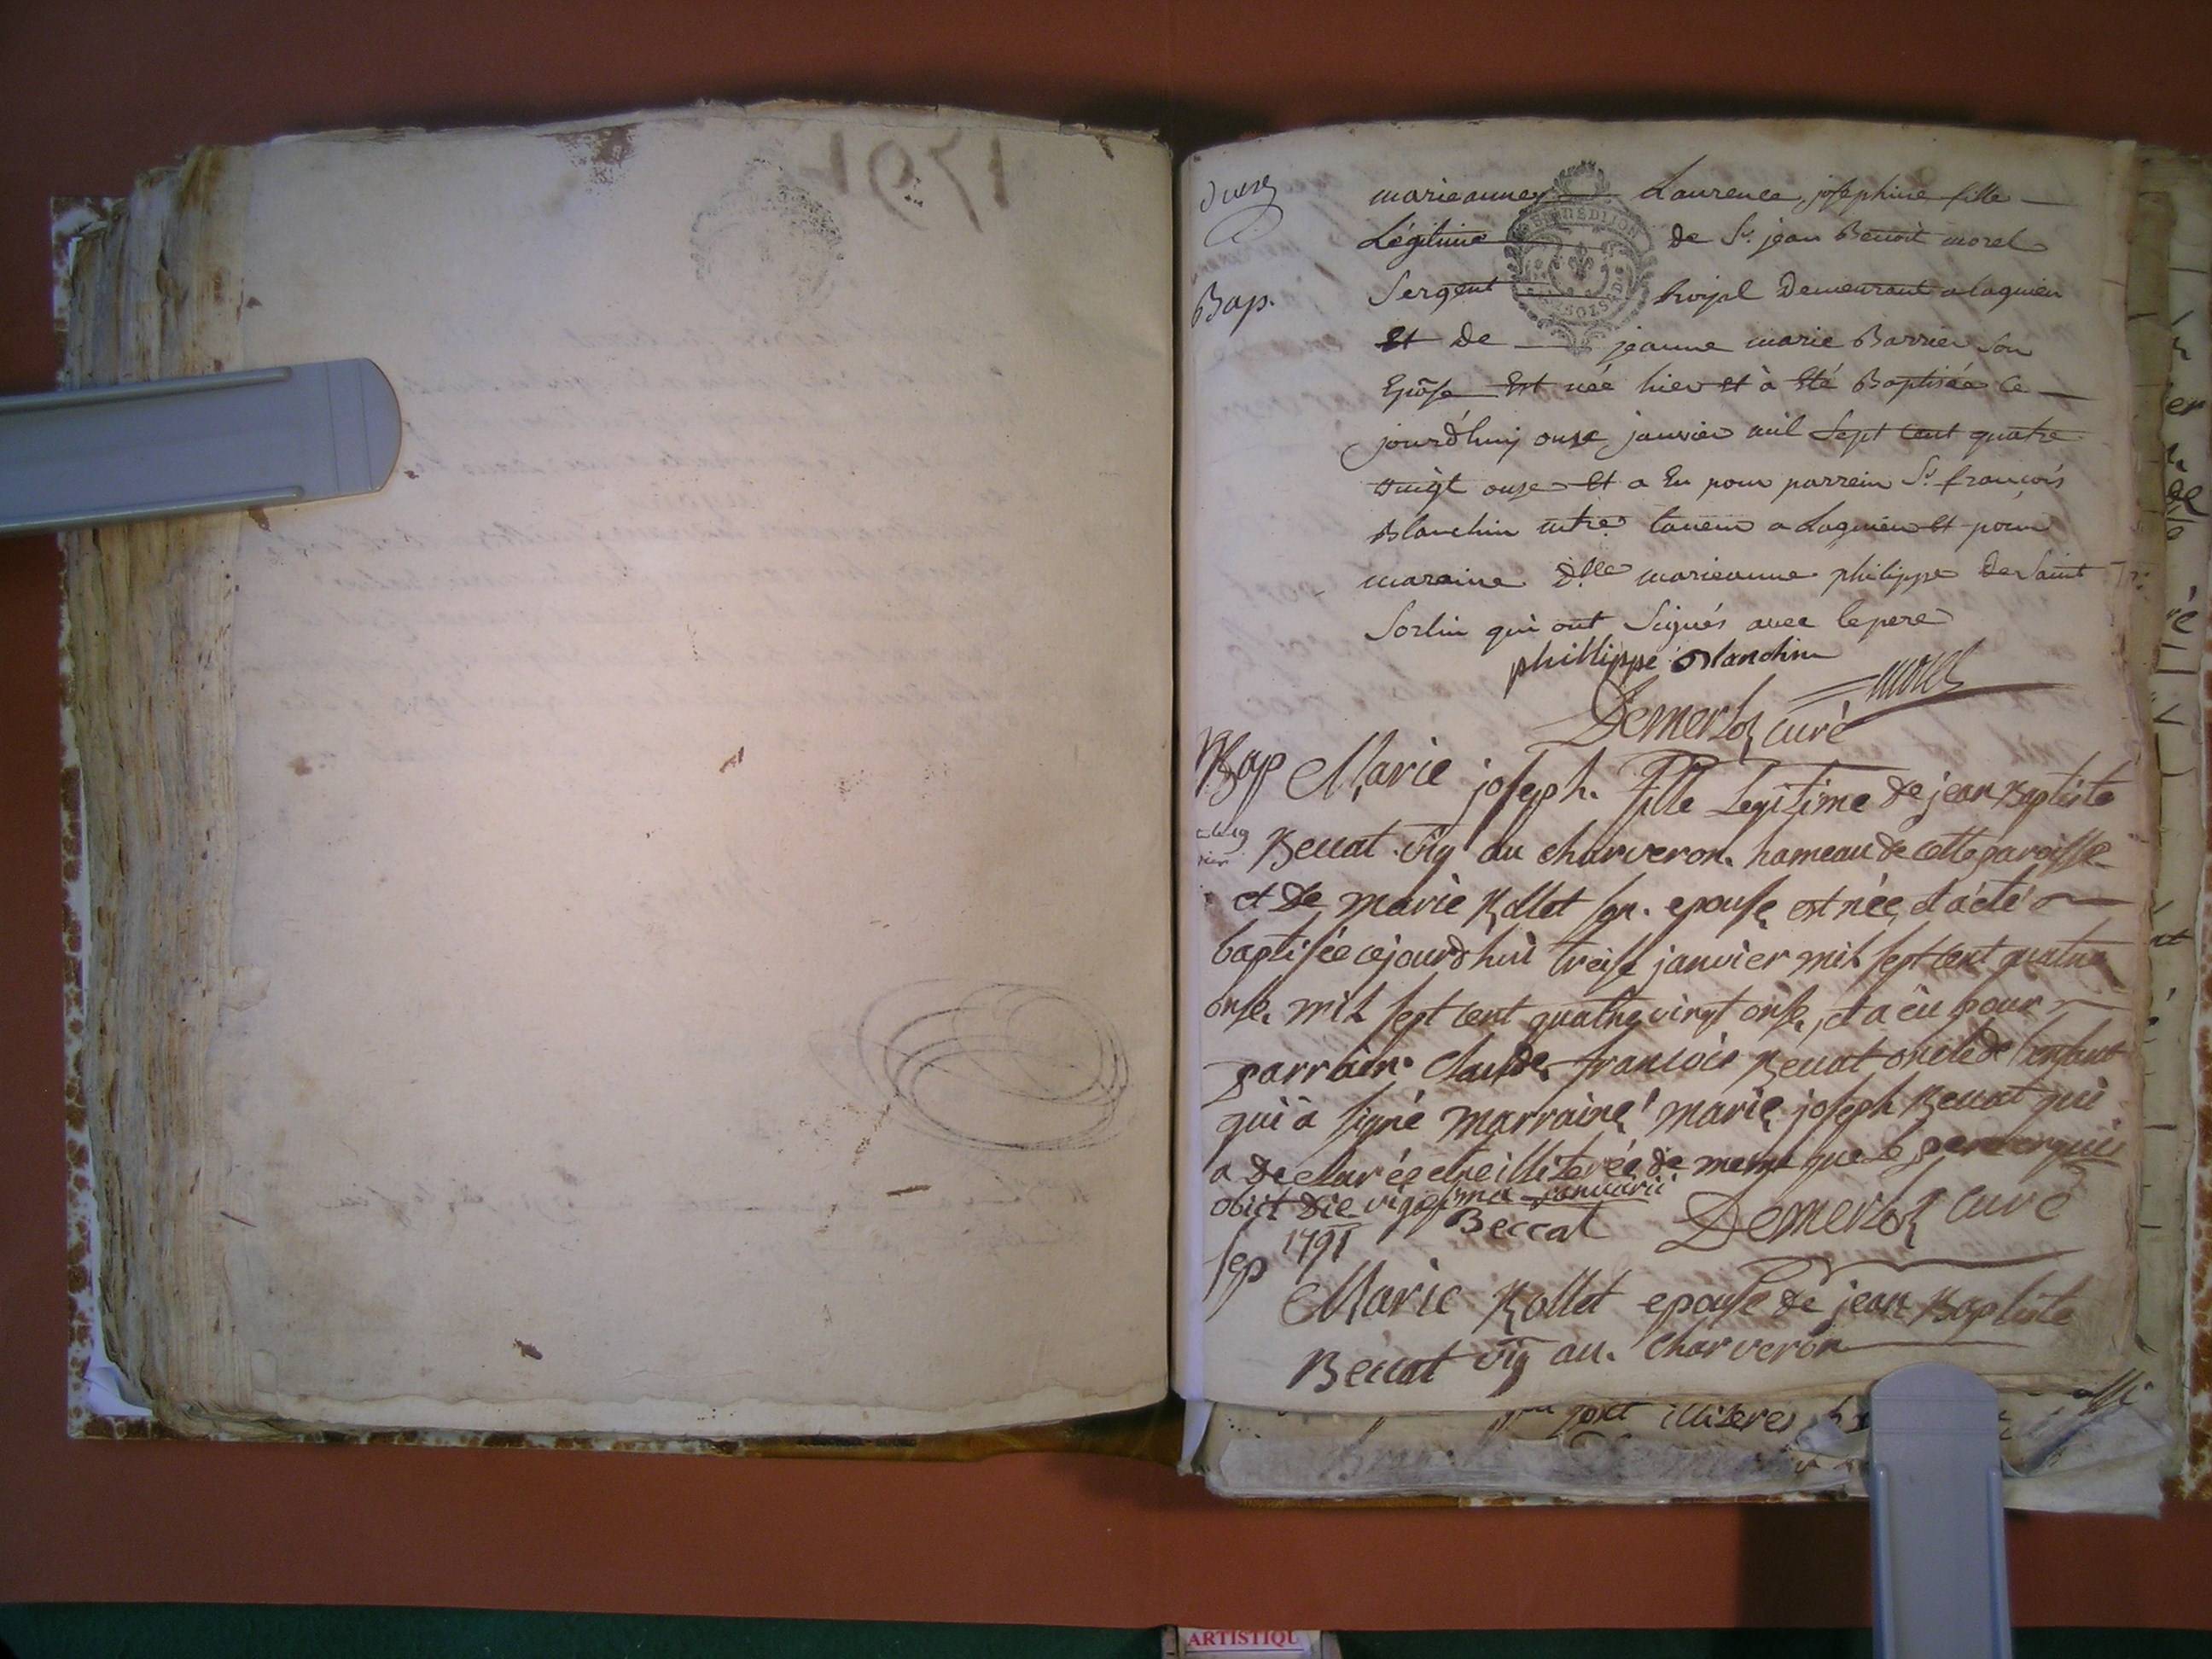 1791
Bap.
marieanne Laurence josephine fille
Légitime de Sr. jean Benoit morel
Sergent Royal Demeurant a lagnieu
Et De jeanne marie Barrier Son
Epôse Est née hier et à été Baptisée Ce
jourd'huy onze janvier mil Sept Cent quatre
vingt onze et a Eu pour parrein Sr. françois
Blanchin a Lagnieu et pour
maraine dlle marieanne philippe de Saint
Sorlin qui ont Signés avec le pere
phillippe Blanchin
morel
Demerloz curé
Bap Marie joseph. fille Legitime de jean Baptiste
Beccat vig au charveron. hameau de cette paroisse
et de marie Rollet son. epouse est née, et a été
baptisée cejourd'hui treise janvier mil sept cent quatre
onse. mil sept cent quatre vingt onse, et a eu pour
parrain Claude françois Beccat oncle de l'enfant
qui a signé marraine marie joseph Beccat qui
a declarée etre illiterée de meme que le pere
obiit die vigesima januarii
1791
Beccat Demerloz curé
sep
Marie Rollet epouse de jean Baptiste
Beccat vig au. Charveron
sont illiteres
ARTISTIQU